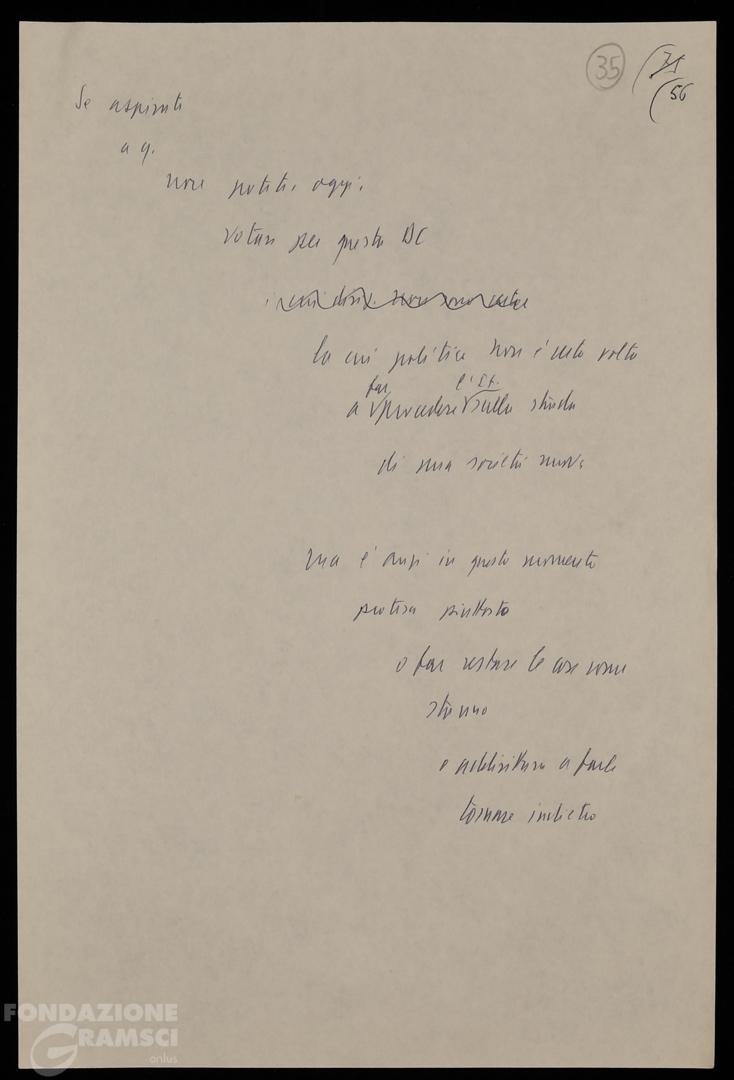 35
71
56
Se aspirate
a q.
non potete, oggi,
votare per questa DC
la cui politica non è certo volta
far l'It.
a procedere sulla strada
di una società nuova
ma è anzi in questo momento
protesa piuttosto
o far restare le cose come
stanno
o addirittura a farle
tornare indietro
FONDAZIONE
GRAMSCI
onlus